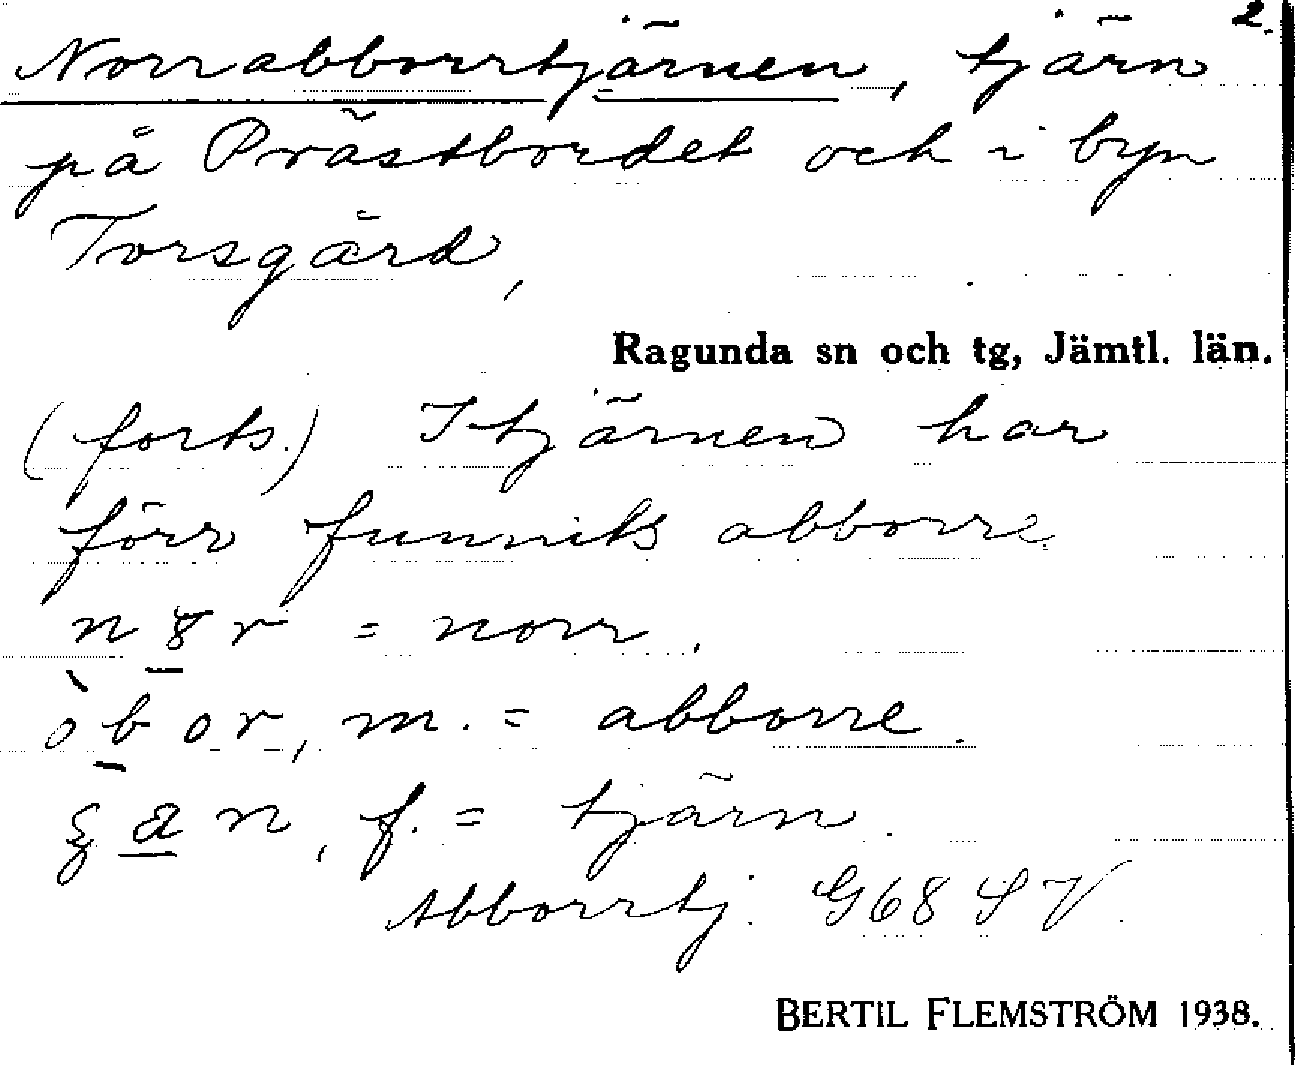 2.
Norrabborrtjärnen, tjärn
på Prästbordet och i byn
Torsgård,
Ragunda sn och tg, Jämtl. län.
(forts.) I tjärnen har
förr funnits abborre.
= norr.
òbor, m. = abborre.
f. = tjärn.
Abborrtj. G68 SV.
BERTIL FLEMSTRÖM 1938.